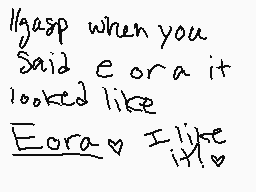 //gasp when you
said e or a it
looked like
Eora ♡ I like
it! ♡